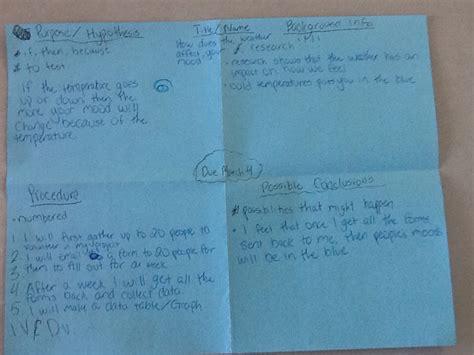 Purpose/Hypothesis
* if, then, because
* to test
If the temperature goes
up or down then the
more your mood will
change because of the
temperature
Title/Name
How does the weather
affect your
mood
Background Info
* research
• research shows that the weather has an
impact on how we feel
• cold temperatures puts you in the blue
Due March 4
Procedure
• numbered
1. I will first gather up to 20 people to
volunteer in my project
2. I will email a form to 20 people for
3. them to fill out for a week
4. After a week I will get all the
forms back and collect data
5. I will make a data table/Graph
IV & DV
Possible Conclusions
* possibilities that might happen
• I feel that once I get all the forms
sent back to me, then peoples moods
will be in the blue